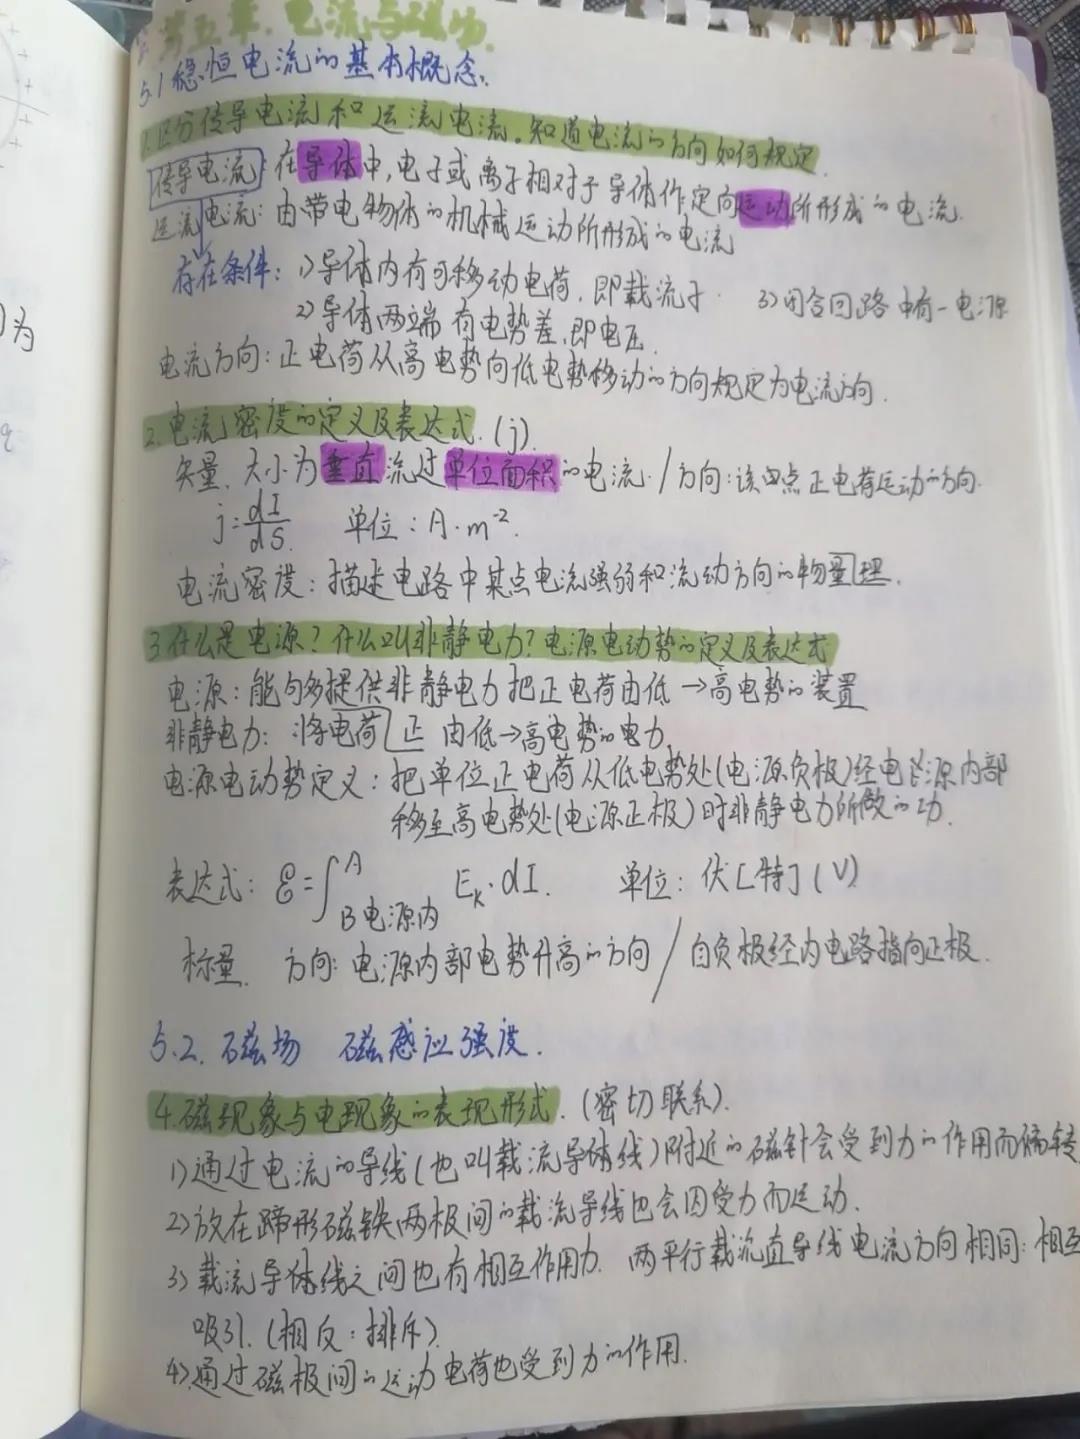 第五章、电流与磁场.
5.1 稳恒电流的基本概念.
1.区分传导电流和运流电流。知道电流的方向如何规定.
传导电流: 在导体中,电子或离子相对于导体作定向运动所形成的电流.
运流电流: 由带电物体的机械运动所形成的电流
存在条件: 1)导体内有可移动电荷,即载流子. 3)闭合回路中有一电源
2)导体两端有电势差,即电压.
电流方向:正电荷从高电势向低电势移动的方向规定为电流方向.
2.电流密度的定义及表达式.(j).
矢量.大小为垂直流过单位面积的电流./方向:该点正电荷运动的方向.
j=dI/dS. 单位:A·m⁻².
电流密度:描述电路中某点电流强弱和流动方向的物量理.
3.什么是电源?什么叫非静电力?电源电动势的定义及表达式
电源:能够提供非静电力把正电荷由低→高电势的装置
非静电力: 将电荷正由低→高电势的电力.
电源电动势定义:把单位正电荷从低电势处(电源负极)经电源内部
移至高电势处(电源正极)时非静电力所做的功.
表达式: ℰ=∫_{B电源内}^{A} E_k·dI. 单位:伏[特](V)
标量. 方向:电源内部电势升高的方向/自负极经内电路指向正极.
5.2. 磁场 磁感应强度.
4.磁现象与电现象的表现形式.(密切联系).
1)通过电流的导线(也叫载流导体线)附近的磁针会受到力的作用而偏转
2)放在蹄形磁铁两极间的载流导线也会因受力而运动.
3)载流导体线之间也有相互作用力. 两平行载流直导线电流方向相同:相互
吸引.(相反:排斥)
4)通过磁极间的运动电荷也受到力的作用.
为
q